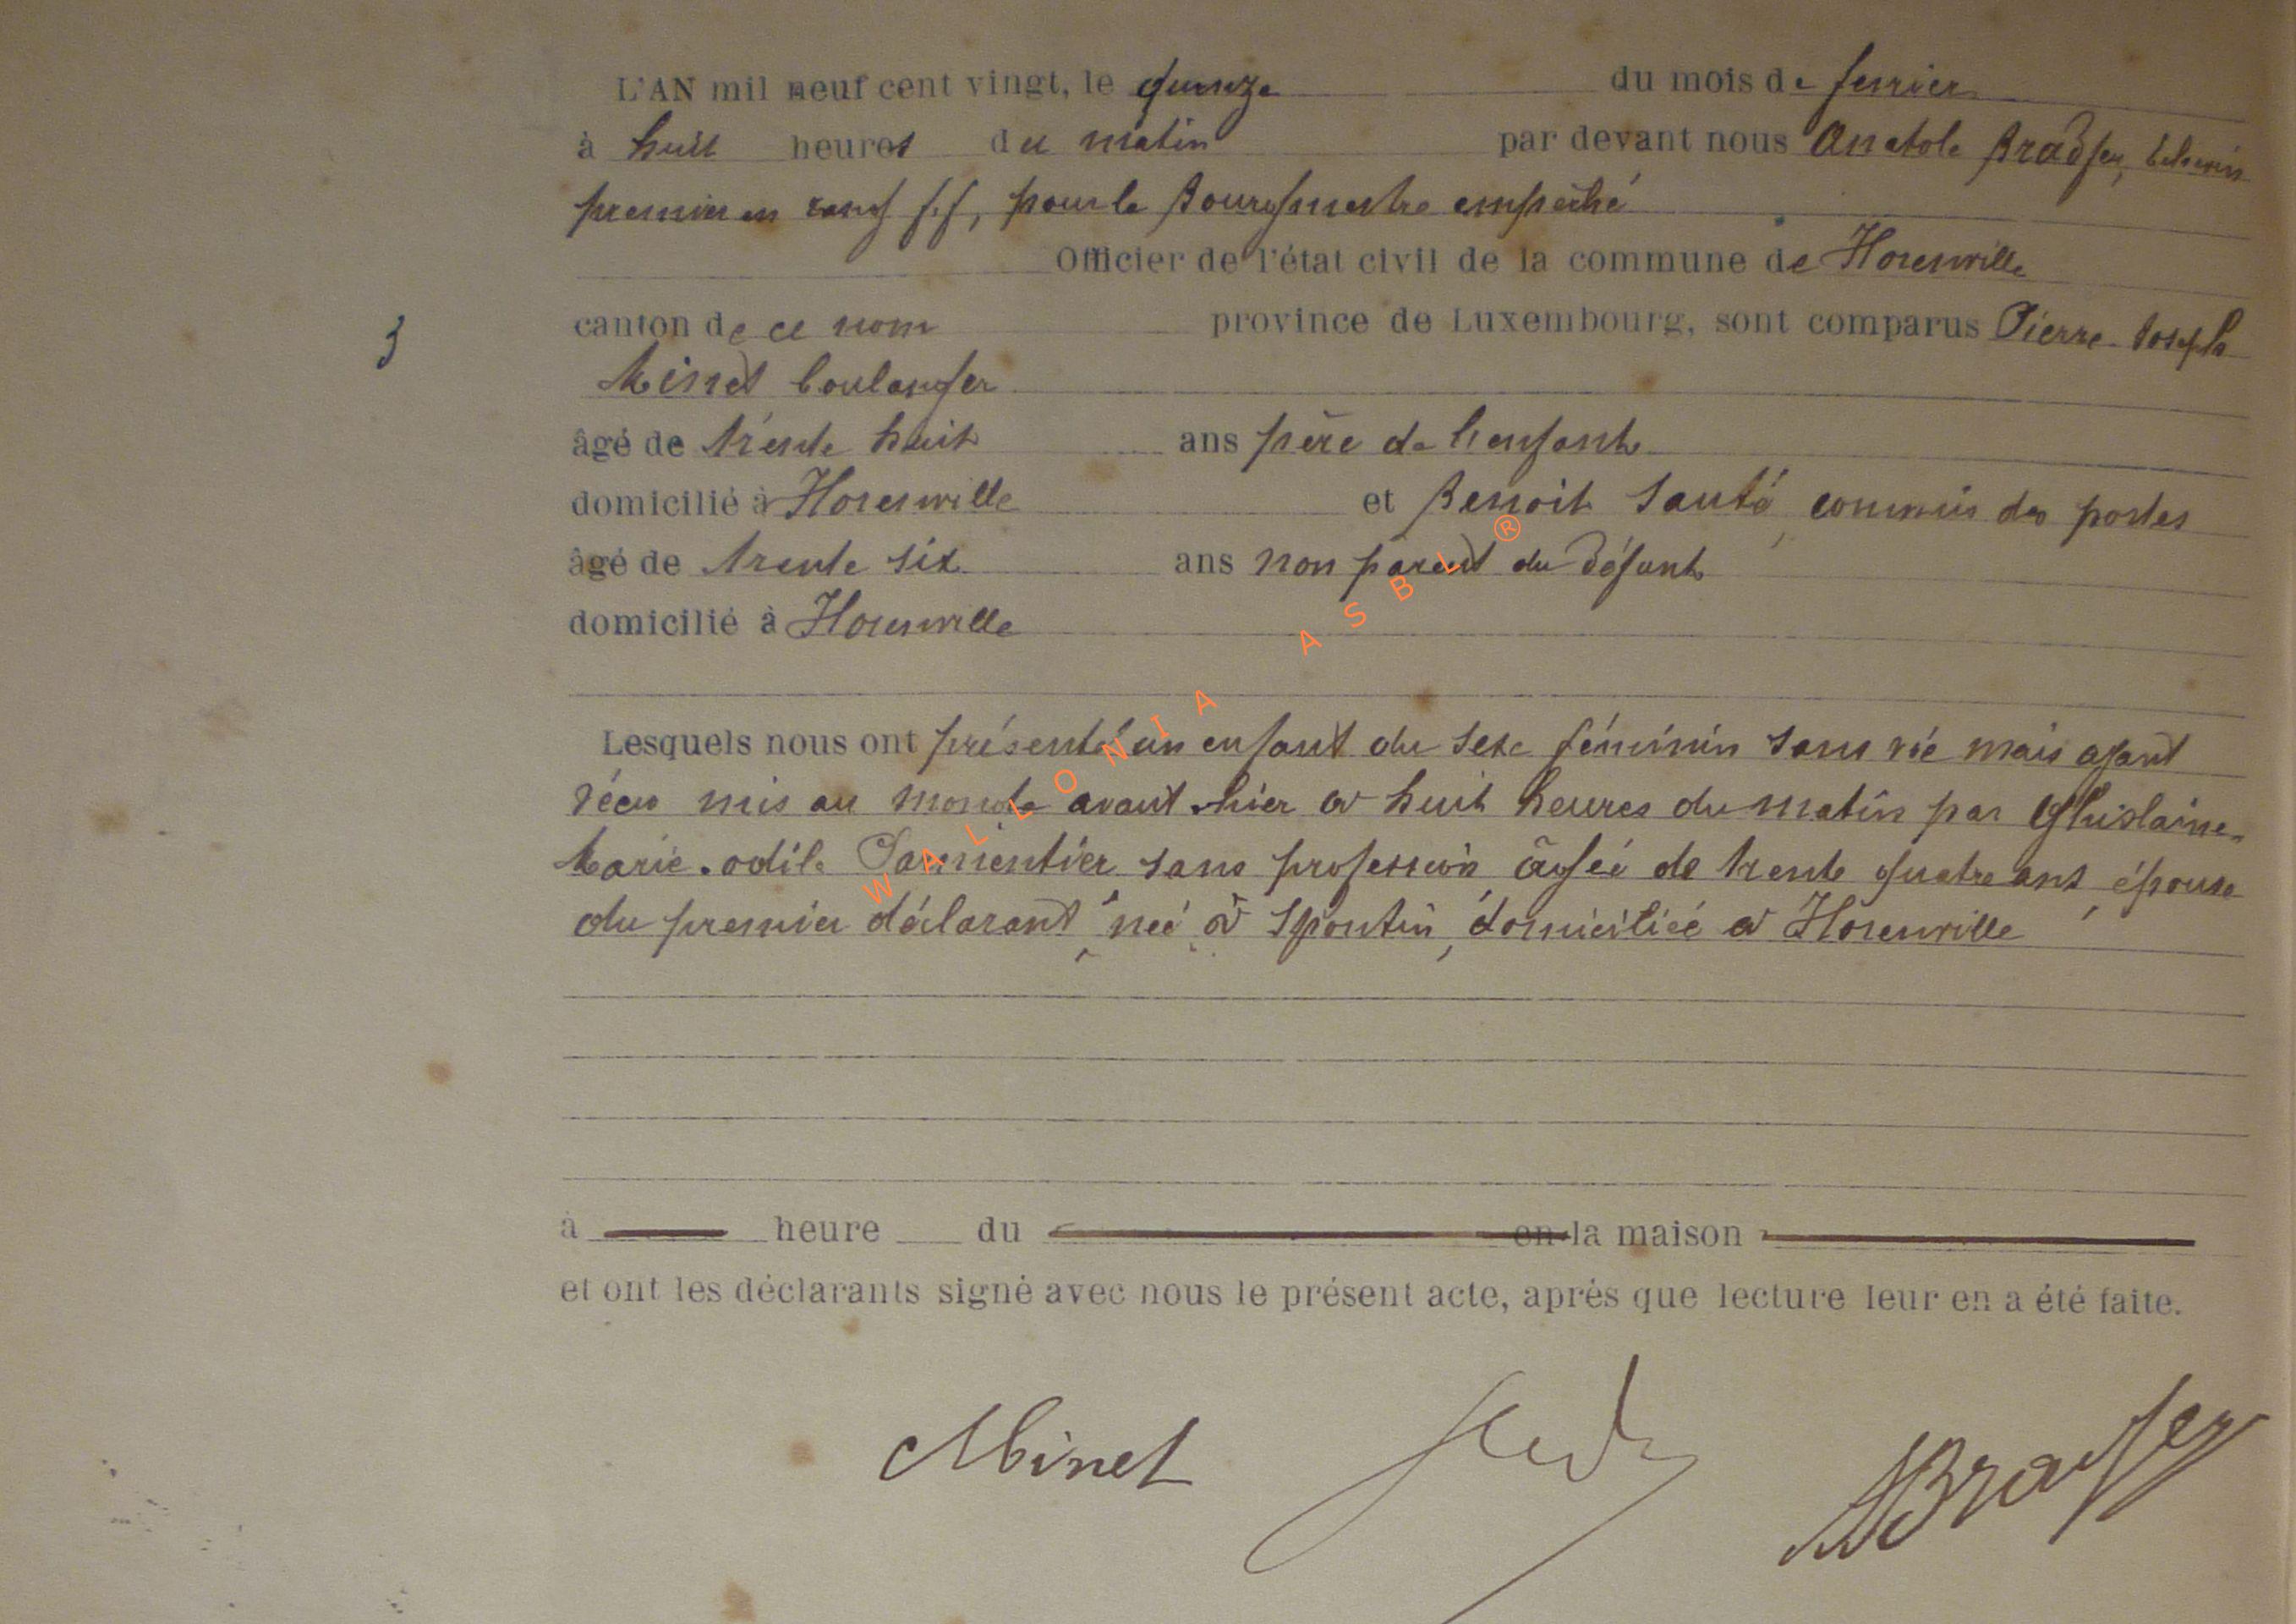 L'AN mil neuf cent vingt, le quinze du mois de fevrier
à huit heures du matin par devant nous Anatole Bradfer, Echevin
premier en rang f.f, pour le Bourgmestre empêché
Officier de l'état civil de la commune de Florenville
canton de ce nom province de Luxembourg, sont comparus Pierre-Joseph
Minet boulanger
3
âgé de trente huit ans père de l'enfant
domicilié à Florenville et Benoit commis des postes
âgé de trente six ans non parent du défunt
domicilié à Florenville
Lesquels nous ont présenté un enfant du sexe féminin sans vie mais ayant
vécu mis au monde avant hier à huit heures du matin par Ghislaine-
Marie-odile Parmentier sans profession âgée de trente quatre ans, épouse
du premier déclarant, née à Spontin, domiciliée à Florenville
à heure du en la maison
et ont les déclarants signé avec nous le présent acte, après que lecture leur en a été faite.
Minet ABradfer
WALLONIA ASBL ®